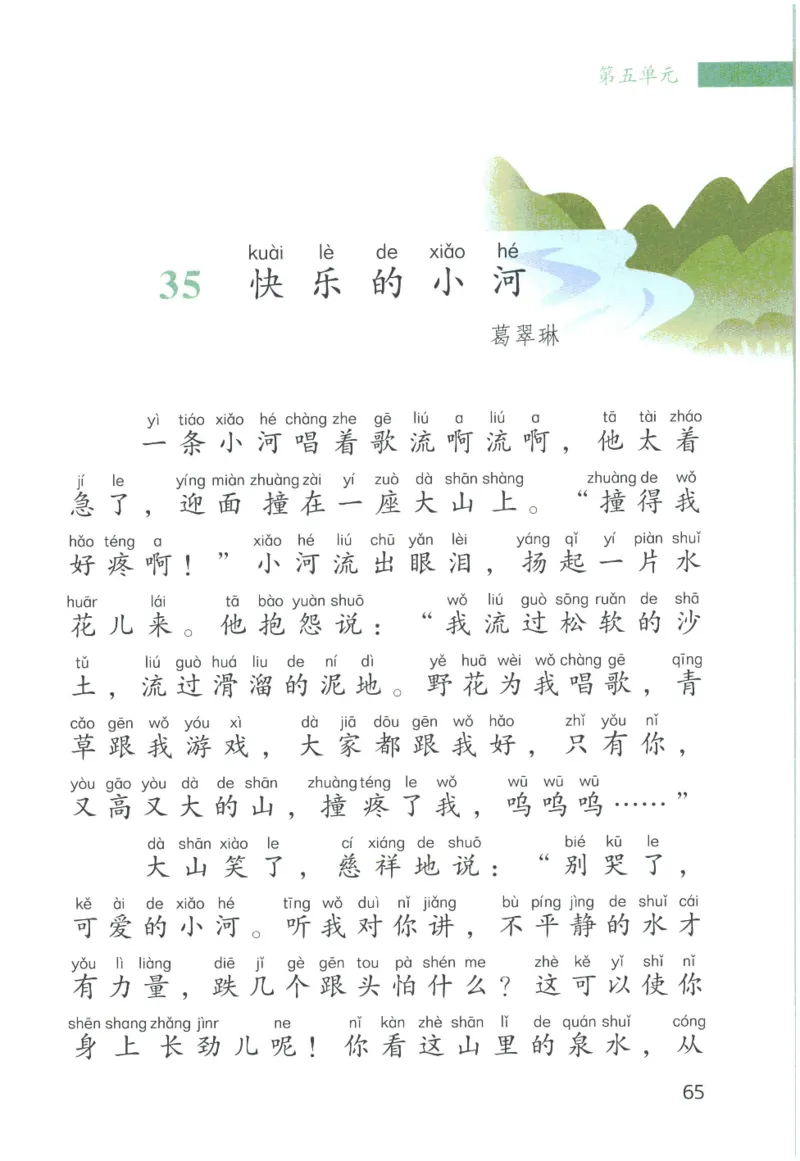 第五单元
kuài lè de xiǎo hé
35 快乐的小河
葛翠琳
yì tiáo xiǎo hé chàng zhe gē liú ɑ liú ɑ tā tài zháo
一条小河唱着歌流啊流啊，他太着
jí le yíng miàn zhuàng zài yí zuò dà shān shàng zhuàng de wǒ
急了，迎面撞在一座大山上。“撞得我
hǎo téng ɑ xiǎo hé liú chū yǎn lèi yáng qǐ yí piàn shuǐ
好疼啊！”小河流出眼泪，扬起一片水
huār lái tā bào yuàn shuō wǒ liú guò sōng ruǎn de shā
花儿来。他抱怨说：“我流过松软的沙
tǔ liú guò huá liu de ní dì yě huā wèi wǒ chàng gē qīng
土，流过滑溜的泥地。野花为我唱歌，青
cǎo gēn wǒ yóu xì dà jiā dōu gēn wǒ hǎo zhǐ yǒu nǐ
草跟我游戏，大家都跟我好，只有你，
yòu gāo yòu dà de shān zhuàng téng le wǒ wū wū wū
又高又大的山，撞疼了我，呜呜呜……”
dà shān xiào le cí xiáng de shuō bié kū le
大山笑了，慈祥地说：“别哭了，
kě ài de xiǎo hé tīng wǒ duì nǐ jiǎng bù píng jìng de shuǐ cái
可爱的小河。听我对你讲，不平静的水才
yǒu lì liàng diē jǐ gè gēn tou pà shén me zhè kě yǐ shǐ nǐ
有力量，跌几个跟头怕什么？这可以使你
shēn shang zhǎng jìnr ne nǐ kàn zhè shān lǐ de quán shuǐ cóng
身上长劲儿呢！你看这山里的泉水，从
65